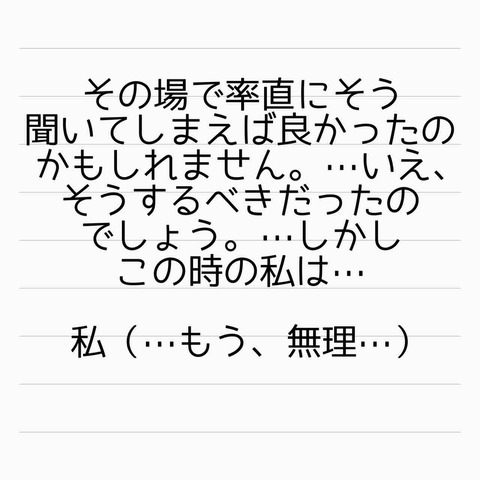 その場で率直にそう
聞いてしまえば良かったの
かもしれません。…いえ、
そうするべきだったの
でしょう。…しかし
この時の私は…
私（…もう、無理…）